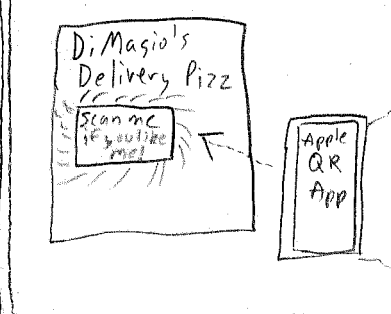 DiMagio's
Delivery Pizz
Scan me
if you like
me!
Apple
QR
App